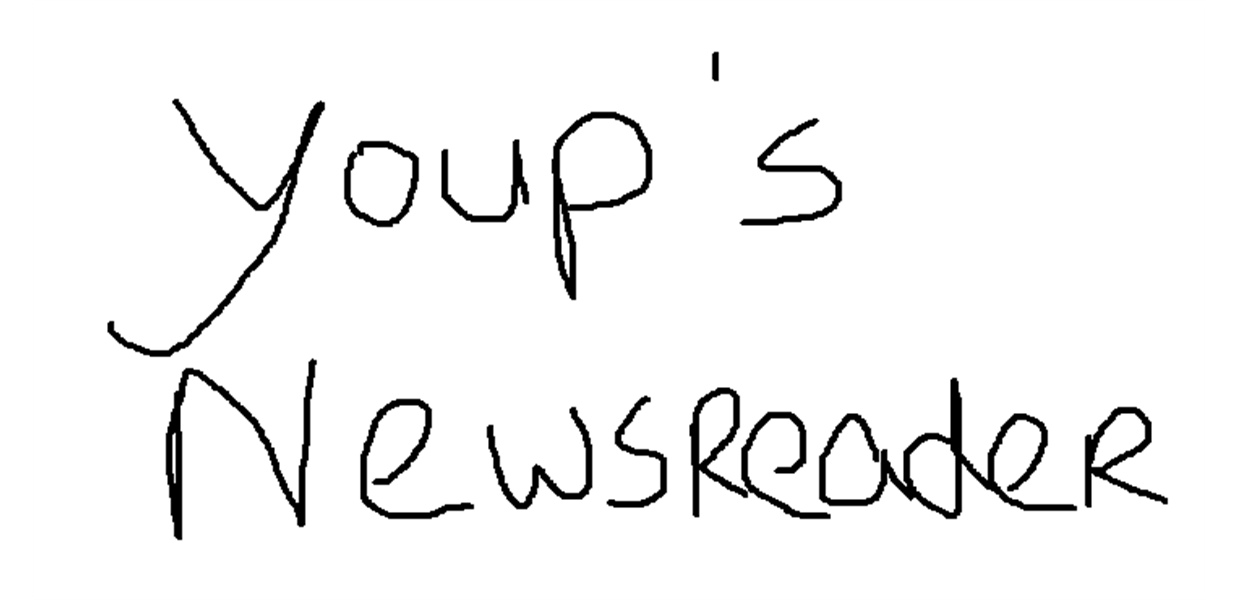 Youp's
NewsReadeR